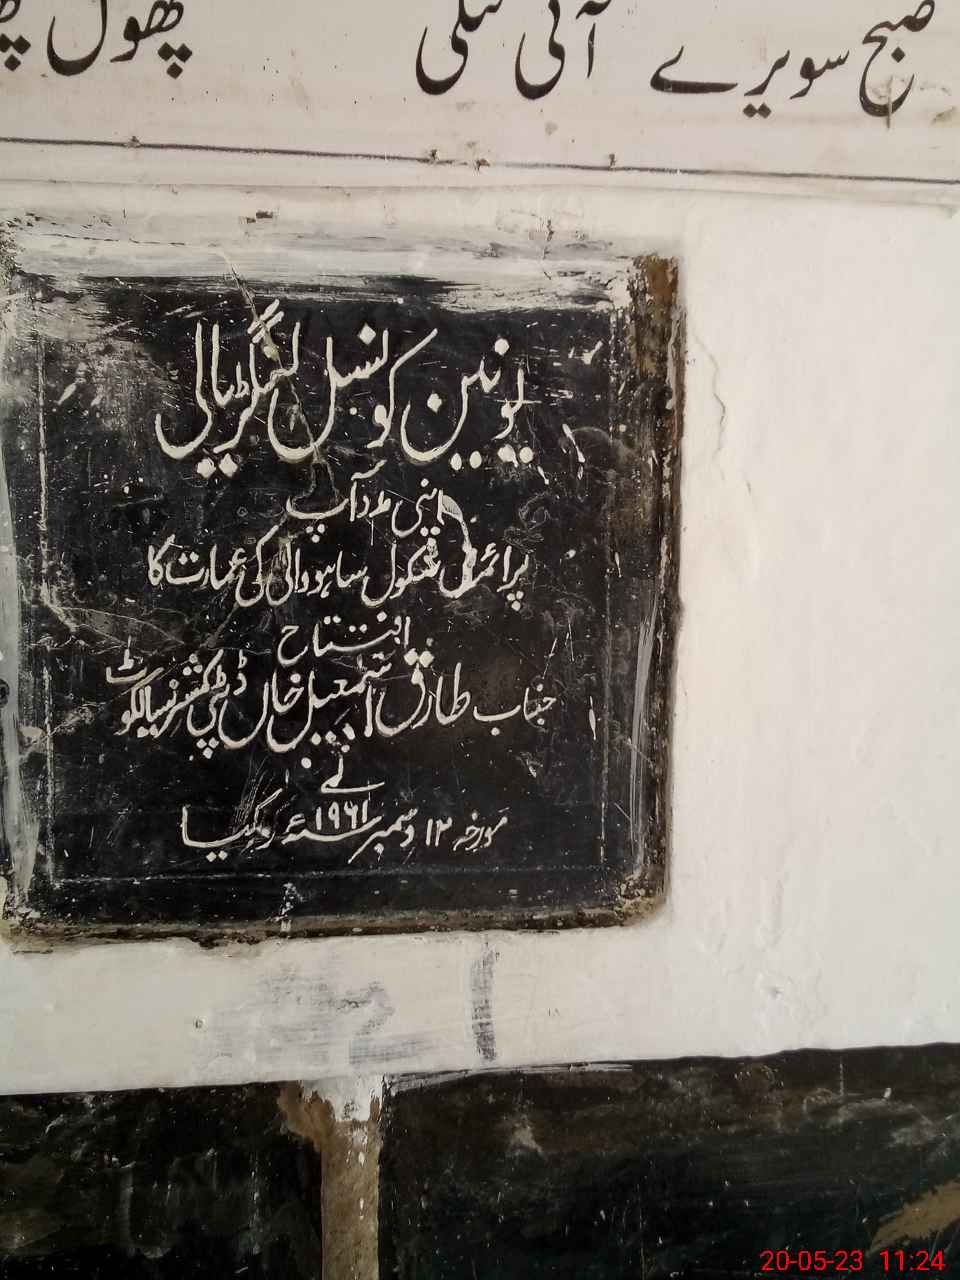 صبح سویرے آئی تتلی پھول
یونین کونسل لنگڑیالی
اپنی مدد آپ
پرائمری سکول ساہووالی کی عمارت کا
افتتاح
جناب طارق اسمٰعیل خاں ڈپٹی کمشنر سیالکوٹ
نے
مورخہ ۱۲ دسمبر ۱۹۶۱ سنہء کو کیا
20-05-23 11:24